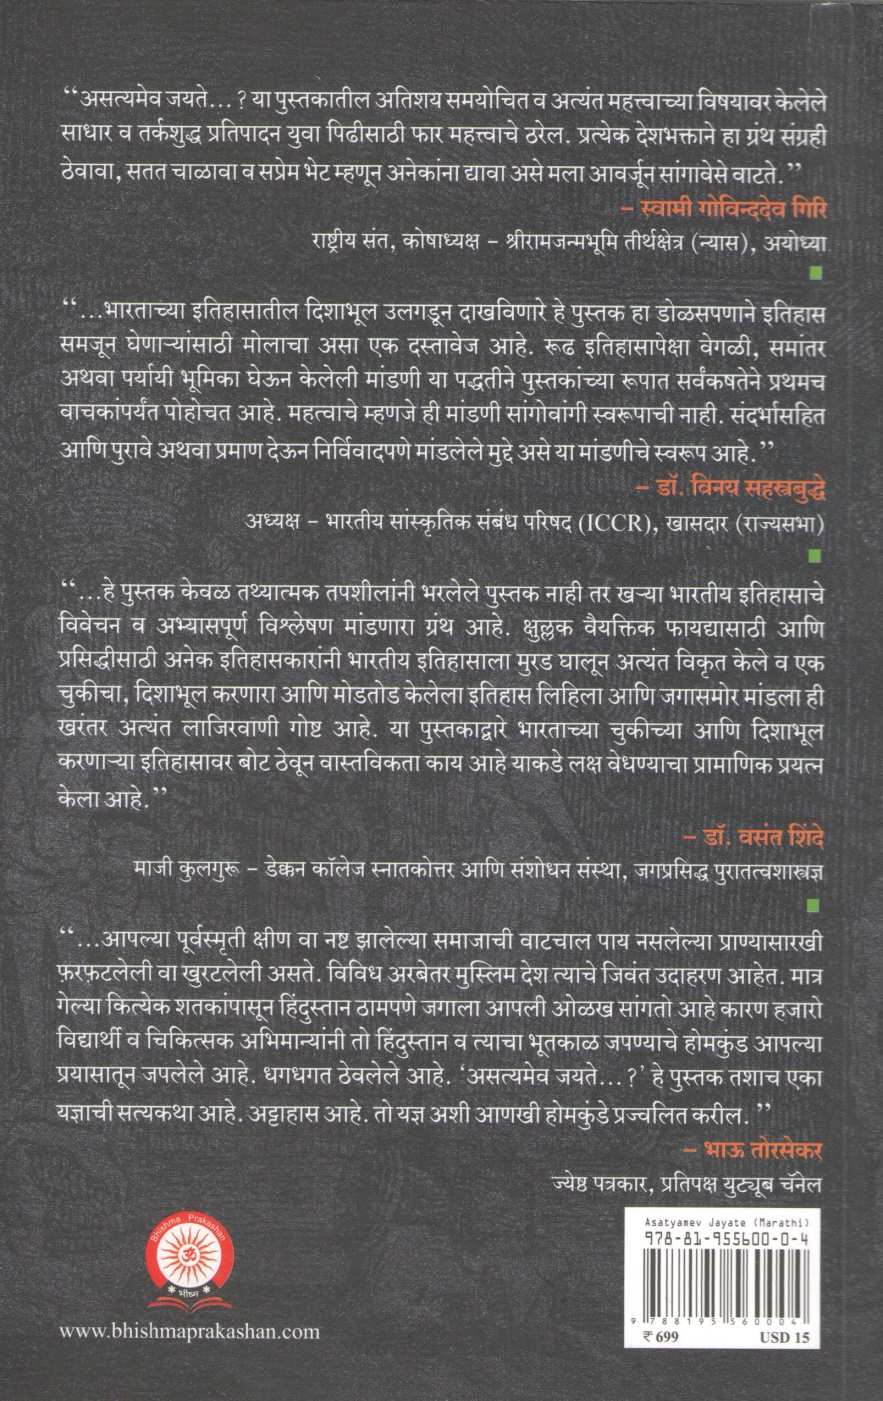 “असत्यमेव जयते...? या पुस्तकातील अतिशय समयोचित व अत्यंत महत्त्वाच्या विषयावर केलेले
साधार व तर्कशुद्ध प्रतिपादन युवा पिढीसाठी फार महत्त्वाचे ठरेल. प्रत्येक देशभक्ताने हा ग्रंथ संग्रही
ठेवावा, सतत चाळावा व सप्रेम भेट म्हणून अनेकांना द्यावा असे मला आवर्जून सांगावेसे वाटते.”
– स्वामी गोविन्ददेव गिरि
राष्ट्रीय संत, कोषाध्यक्ष – श्रीरामजन्मभूमि तीर्थक्षेत्र (न्यास), अयोध्या
“...भारताच्या इतिहासातील दिशाभूल उलगडून दाखविणारे हे पुस्तक हा डोळसपणाने इतिहास
समजून घेणाऱ्यांसाठी मोलाचा असा एक दस्तावेज आहे. रूढ इतिहासापेक्षा वेगळी, समांतर
अथवा पर्यायी भूमिका घेऊन केलेली मांडणी या पद्धतीने पुस्तकांच्या रूपात सर्वंकषतेने प्रथमच
वाचकांपर्यंत पोहोचत आहे. महत्वाचे म्हणजे ही मांडणी सांगोवांगी स्वरूपाची नाही. संदर्भासहित
आणि पुरावे अथवा प्रमाण देऊन निर्विवादपणे मांडलेले मुद्दे असे या मांडणीचे स्वरूप आहे.”
– डॉ. विनय सहस्त्रबुद्धे
अध्यक्ष – भारतीय सांस्कृतिक संबंध परिषद (ICCR), खासदार (राज्यसभा)
“...हे पुस्तक केवळ तथ्यात्मक तपशीलांनी भरलेले पुस्तक नाही तर खऱ्या भारतीय इतिहासाचे
विवेचन व अभ्यासपूर्ण विश्लेषण मांडणारा ग्रंथ आहे. क्षुल्लक वैयक्तिक फायद्यासाठी आणि
प्रसिद्धीसाठी अनेक इतिहासकारांनी भारतीय इतिहासाला मुरड घालून अत्यंत विकृत केले व एक
चुकीचा, दिशाभूल करणारा आणि मोडतोड केलेला इतिहास लिहिला आणि जगासमोर मांडला ही
खरंतर अत्यंत लाजिरवाणी गोष्ट आहे. या पुस्तकाद्वारे भारताच्या चुकीच्या आणि दिशाभूल
करणाऱ्या इतिहासावर बोट ठेवून वास्तविकता काय आहे याकडे लक्ष वेधण्याचा प्रामाणिक प्रयत्न
केला आहे.”
– डॉ. वसंत शिंदे
माजी कुलगुरू – डेक्कन कॉलेज स्नातकोत्तर आणि संशोधन संस्था, जगप्रसिद्ध पुरातत्वशास्त्रज्ञ
“...आपल्या पूर्वस्मृती क्षीण वा नष्ट झालेल्या समाजाची वाटचाल पाय नसलेल्या प्राण्यासारखी
फ़रफ़टलेली वा खुरटलेली असते. विविध अरबेतर मुस्लिम देश त्याचे जिवंत उदाहरण आहेत. मात्र
गेल्या कित्येक शतकांपासून हिंदुस्तान ठामपणे जगाला आपली ओळख सांगतो आहे कारण हजारो
विद्यार्थी व चिकित्सक अभिमान्यांनी तो हिंदुस्तान व त्याचा भूतकाळ जपण्याचे होमकुंड आपल्या
प्रयासातून जपलेले आहे. धगधगत ठेवलेले आहे. ‘असत्यमेव जयते...?’ हे पुस्तक तशाच एका
यज्ञाची सत्यकथा आहे. अट्टाहास आहे. तो यज्ञ अशी आणखी होमकुंडे प्रज्वलित करील. ”
– भाऊ तोरसेकर
ज्येष्ठ पत्रकार, प्रतिपक्ष युट्यूब चॅनेल
Bhishma Prakashan
ॐ
* भीष्म *
www.bhishmaprakashan.com
Asatyamev Jayate (Marathi)
978-81-955600-0-4
9 788195 560004
₹ 699 USD 15